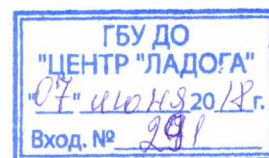 ГБУ ДО
"ЦЕНТР "ЛАДОГА"
"07" июня 2018г.
Вход. № 291